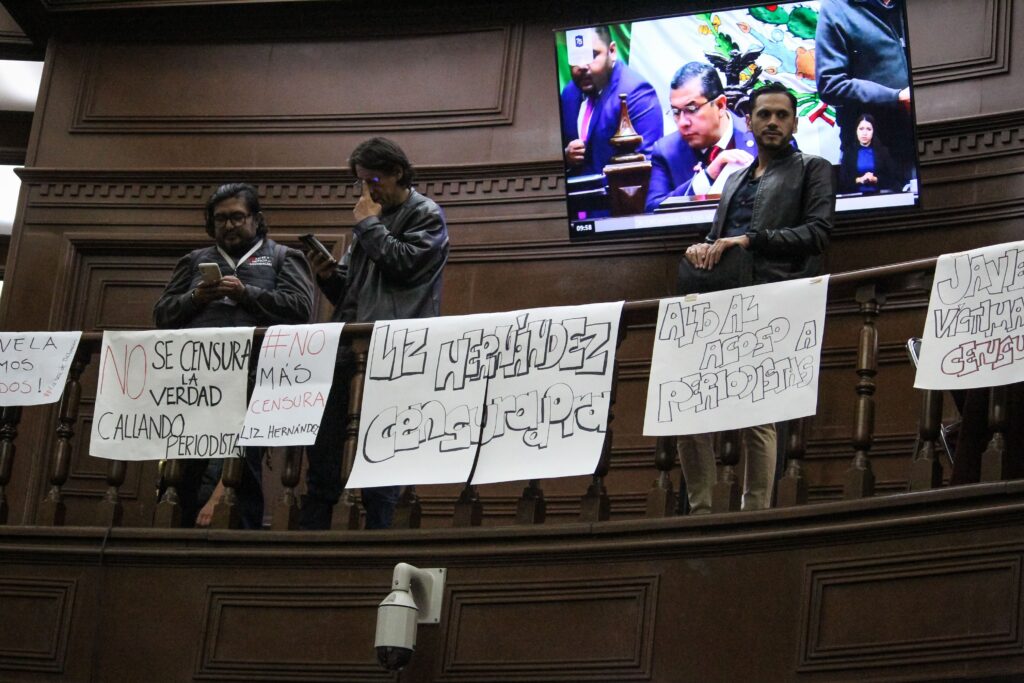 VELA
MOS
DOS!
NO SE CENSURA
LA
VERDAD
CALLANDO
PERIODISTAS
#NO
MÁS
CENSURA
LIZ HERNÁNDEZ
LIZ HERNÁNDEZ
CENSURADORA
ALTO AL
ACOSO A
PERIODISTAS
JAVIE
VÍCTIMA
CENSU
09:58